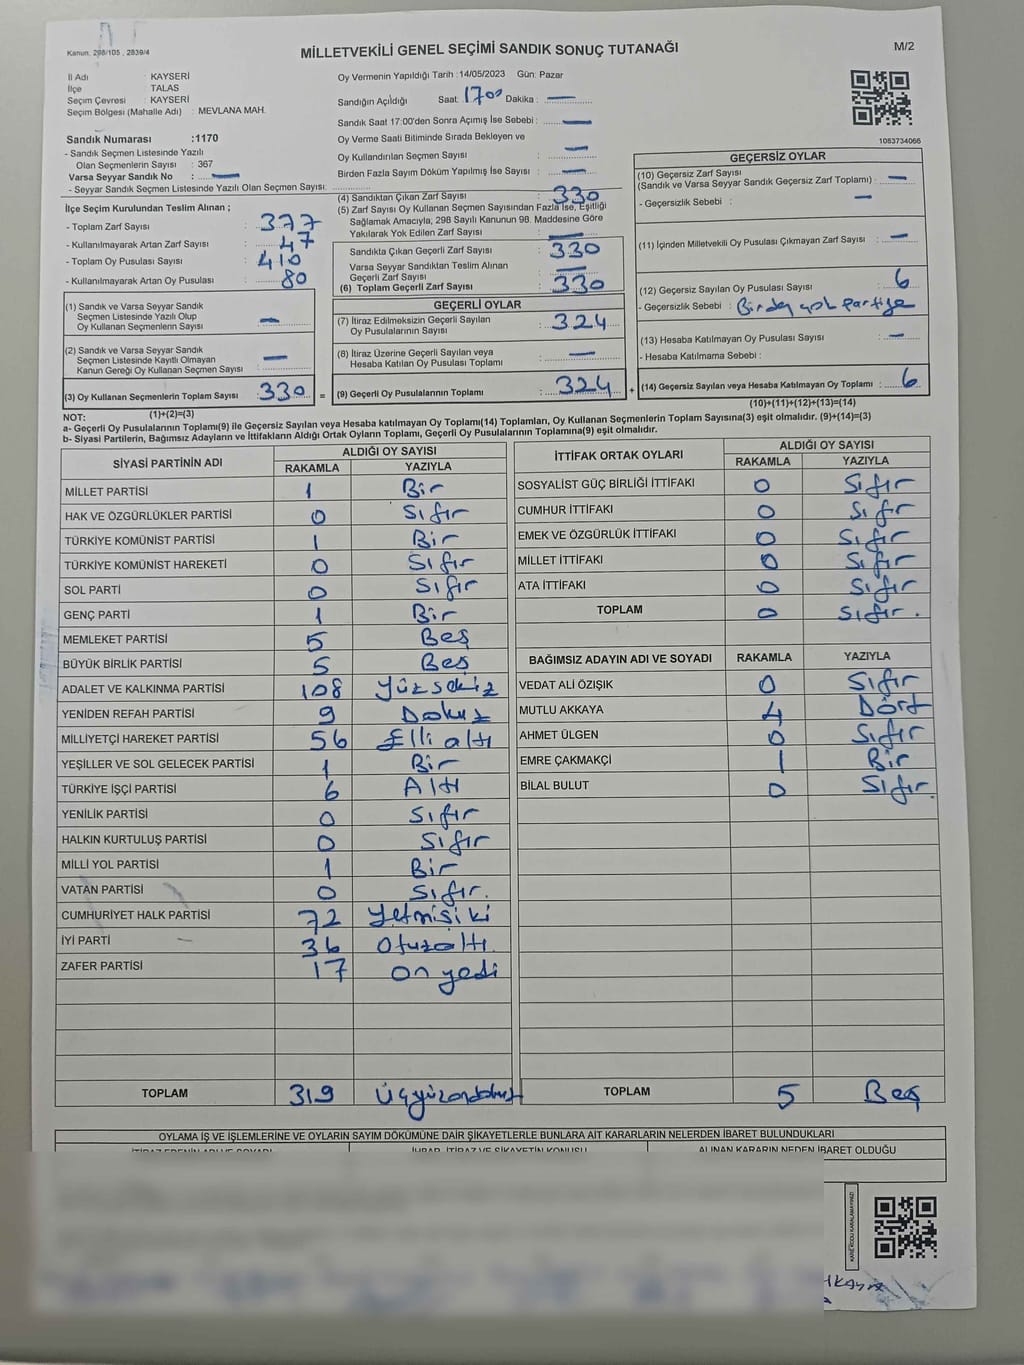 Kanun: 298/105 , 2839/4
MİLLETVEKİLİ GENEL SEÇİMİ SANDIK SONUÇ TUTANAĞI
M/2
İl Adı : KAYSERİ
İlçe : TALAS
Seçim Çevresi : KAYSERİ
Seçim Bölgesi (Mahalle Adı) : MEVLANA MAH.
Oy Vermenin Yapıldığı Tarih :14/05/2023 Gün: Pazar
Sandığın Açıldığı Saat: 1700 Dakika : —
Sandık Saat 17:00'den Sonra Açımış İse Sebebi : —
Oy Verme Saati Bitiminde Sırada Bekleyen ve
Oy Kullandırılan Seçmen Sayısı : —
Birden Fazla Sayım Döküm Yapılmış İse Sayısı : —
1083734066
Sandık Numarası :1170
- Sandık Seçmen Listesinde Yazılı
Olan Seçmenlerin Sayısı : 367
Varsa Seyyar Sandık No : —
- Seyyar Sandık Seçmen Listesinde Yazılı Olan Seçmen Sayısı:
İlçe Seçim Kurulundan Teslim Alınan ;
- Toplam Zarf Sayısı : 377
- Kullanılmayarak Artan Zarf Sayısı : 47
- Toplam Oy Pusulası Sayısı : 410
- Kullanılmayarak Artan Oy Pusulası : 80
(1) Sandık ve Varsa Seyyar Sandık
Seçmen Listesinde Yazılı Olup
Oy Kullanan Seçmenlerin Sayısı : —
(2) Sandık ve Varsa Seyyar Sandık
Seçmen Listesinde Kayıtlı Olmayan
Kanun Gereği Oy Kullanan Seçmen Sayısı : —
(3) Oy Kullanan Seçmenlerin Toplam Sayısı : 330 =
(1)+(2)=(3)
(4) Sandıktan Çıkan Zarf Sayısı : 330
(5) Zarf Sayısı Oy Kullanan Seçmen Sayısından Fazla İse, Eşitliği
Sağlamak Amacıyla, 298 Sayılı Kanunun 98. Maddesine Göre
Yakılarak Yok Edilen Zarf Sayısı : —
Sandıkta Çıkan Geçerli Zarf Sayısı : 330
Varsa Seyyar Sandıktan Teslim Alınan
Geçerli Zarf Sayısı : —
(6) Toplam Geçerli Zarf Sayısı : 330
GEÇERLİ OYLAR
(7) İtiraz Edilmeksizin Geçerli Sayılan
Oy Pusulalarının Sayısı : 324
(8) İtiraz Üzerine Geçerli Sayılan veya
Hesaba Katılan Oy Pusulası Toplamı : —
(9) Geçerli Oy Pusulalarının Toplamı : 324 +
GEÇERSİZ OYLAR
(10) Geçersiz Zarf Sayısı
(Sandık ve Varsa Seyyar Sandık Geçersiz Zarf Toplamı) : —
- Geçersizlik Sebebi : —
(11) İçinden Milletvekili Oy Pusulası Çıkmayan Zarf Sayısı : —
(12) Geçersiz Sayılan Oy Pusulası Sayısı : 6
- Geçersizlik Sebebi : Birden çok partiye
(13) Hesaba Katılmayan Oy Pusulası Sayısı : —
- Hesaba Katılmama Sebebi :
(14) Geçersiz Sayılan veya Hesaba Katılmayan Oy Toplamı : 6
(10)+(11)+(12)+(13)=(14)
NOT:
a- Geçerli Oy Pusulalarının Toplamı(9) ile Geçersiz Sayılan veya Hesaba katılmayan Oy Toplamı(14) Toplamları, Oy Kullanan Seçmenlerin Toplam Sayısına(3) eşit olmalıdır. (9)+(14)=(3)
b- Siyasi Partilerin, Bağımsız Adayların ve İttifakların Aldığı Ortak Oyların Toplamı, Geçerli Oy Pusulalarının Toplamına(9) eşit olmalıdır.
SİYASİ PARTİNİN ADI ALDIĞI OY SAYISI
RAKAMLA YAZIYLA
MİLLET PARTİSİ 1 Bir
HAK VE ÖZGÜRLÜKLER PARTİSİ 0 Sıfır
TÜRKİYE KOMÜNİST PARTİSİ 1 Bir
TÜRKİYE KOMÜNİST HAREKETİ 0 Sıfır
SOL PARTİ 0 Sıfır
GENÇ PARTİ 1 Bir
MEMLEKET PARTİSİ 5 Beş
BÜYÜK BİRLİK PARTİSİ 5 Beş
ADALET VE KALKINMA PARTİSİ 108 Yüzsekiz
YENİDEN REFAH PARTİSİ 9 Dokuz
MİLLİYETÇİ HAREKET PARTİSİ 56 Elli altı
YEŞİLLER VE SOL GELECEK PARTİSİ 1 Bir
TÜRKİYE İŞÇİ PARTİSİ 6 Altı
YENİLİK PARTİSİ 0 Sıfır
HALKIN KURTULUŞ PARTİSİ 0 Sıfır
MİLLİ YOL PARTİSİ 1 Bir
VATAN PARTİSİ 0 Sıfır.
CUMHURİYET HALK PARTİSİ 72 Yetmişiki
İYİ PARTİ 36 Otuzaltı.
ZAFER PARTİSİ 17 on yedi
TOPLAM 319 Üçyüzondokuz
İTTİFAK ORTAK OYLARI ALDIĞI OY SAYISI
RAKAMLA YAZIYLA
SOSYALİST GÜÇ BİRLİĞİ İTTİFAKI 0 Sıfır
CUMHUR İTTİFAKI 0 Sıfır
EMEK VE ÖZGÜRLÜK İTTİFAKI 0 Sıfır
MİLLET İTTİFAKI 0 Sıfır
ATA İTTİFAKI 0 Sıfır
TOPLAM 0 Sıfır.
BAĞIMSIZ ADAYIN ADI VE SOYADI RAKAMLA YAZIYLA
VEDAT ALİ ÖZIŞIK 0 Sıfır
MUTLU AKKAYA 4 Dört
AHMET ÜLGEN 0 Sıfır
EMRE ÇAKMAKÇİ 1 Bir
BİLAL BULUT 0 Sıfır.
TOPLAM 5 Beş
OYLAMA İŞ VE İŞLEMLERİNE VE OYLARIN SAYIM DÖKÜMÜNE DAİR ŞİKAYETLERLE BUNLARA AİT KARARLARIN NELERDEN İBARET BULUNDUKLARI
ALINAN KARARIN NEDEN İBARET OLDUĞU
KARE KODU KARALAMAYINIZ!